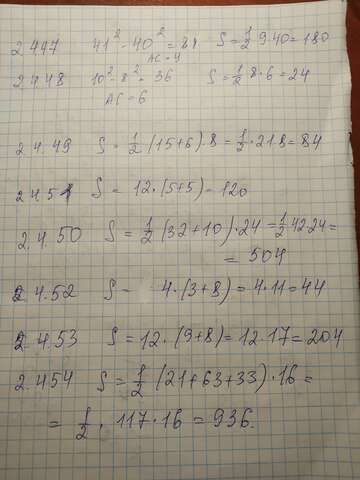 2.447 41² - 40² = 81 S = 1/2 9·40 = 180
AC = 9
2.4.48 10² - 8² = 36 S = 1/2 8·6 = 24
AC = 6
2.4.49 S = 1/2 · (15+6) · 8 = 1/2 · 21·8 = 84
2.4.51 S = 12 · (5+5) = 120
2.4.50 S = 1/2 (32+10) · 24 = 1/2 42·24 =
= 504
2.4.52 S = 4 · (3+8) = 4·11 = 44
2.4.53 S = 12 · (9+8) = 12·17 = 204
2.454 S = 1/2 (21+63+33) · 16 =
= 1/2 · 117·16 = 936.